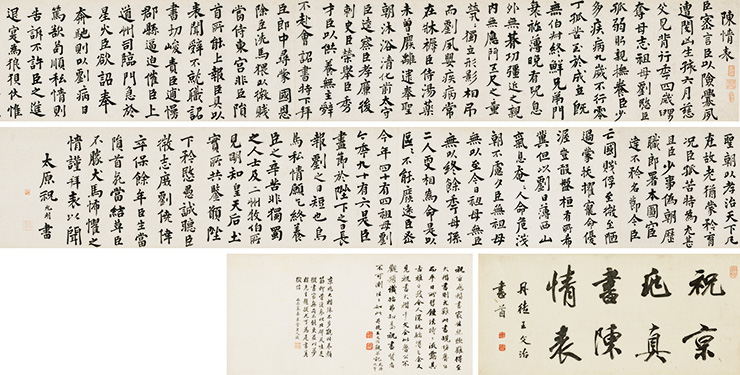 陳情表
臣密言臣以險釁夙
遭閔凶生孩六月慈
父見背行年四歲舅
奪母志祖母劉愍臣
孤弱躬親撫養臣少
多疾病九歲不行零
丁孤苦至於成立既
無伯叔終鮮兄弟門
衰祚薄晚有兒息
外無朞功彊近之親
內無應門五尺之童
煢煢獨立形影相弔
而劉夙嬰疾病常
在牀蓐臣侍湯藥
未曾廢離逮奉聖
朝沐浴清化前太守
臣逵察臣孝廉後
刺史臣榮舉臣秀
才臣以供養無主辭
不赴會詔書特下拜
臣郎中尋蒙國恩
除臣洗馬猥以微賤
當侍東宮非臣隕
首所能上報臣具以
表聞辭不就職詔
書切峻責臣逋慢
郡縣逼迫催臣上
道州司臨門急於
星火臣欲詔奉
奔馳則以劉病日
篤欲苟順私情則
告訴不許臣之進
退實為狼狽伏惟
聖朝以孝治天下凡
在故老猶蒙矜育
况臣孤苦特為尤甚
且臣少事偽朝歷
職郎署本圖宦
達不矜名節今臣
亡國賤俘至微至陋
過蒙拔擢寵命優
渥豈敢盤桓有所希
冀但以劉日薄西山
氣息奄奄人命危淺
朝不慮夕臣無祖母
無以至今日祖母無臣
無以終餘年母孫
二人更相為命是以
區區不能廢遠臣密
今年四十有四祖母劉
今年九十有六是臣
盡節於陛下之日長
報劉之日短也烏
鳥私情願乞終養
臣之辛苦非獨蜀
之人士及二州牧伯所
見明知皇天后土
實所共鑒願陛
下矜愍愚誠聽臣
微志庶劉僥倖
卒保餘年臣生當
隕首死當結草臣
不勝犬馬怖懼之
情謹拜表以聞
太原祝允明書
祝京
兆真
書陳
情表
丹徒王文治
書首